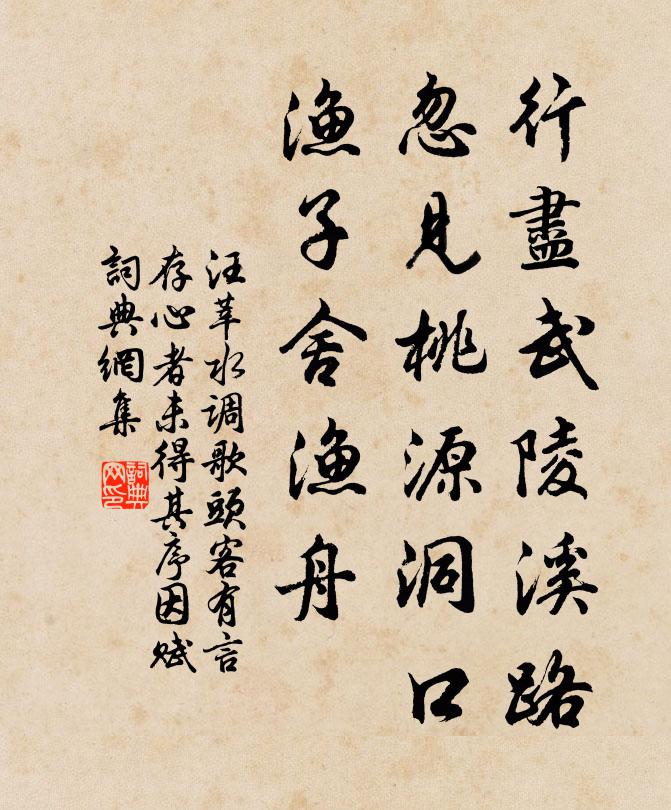 行盡武陵溪路
忽見桃源洞口
漁子舍漁舟
汪莘水调歌頭客有言
存心者未得其序因赋
詞典網集
詞典
网印